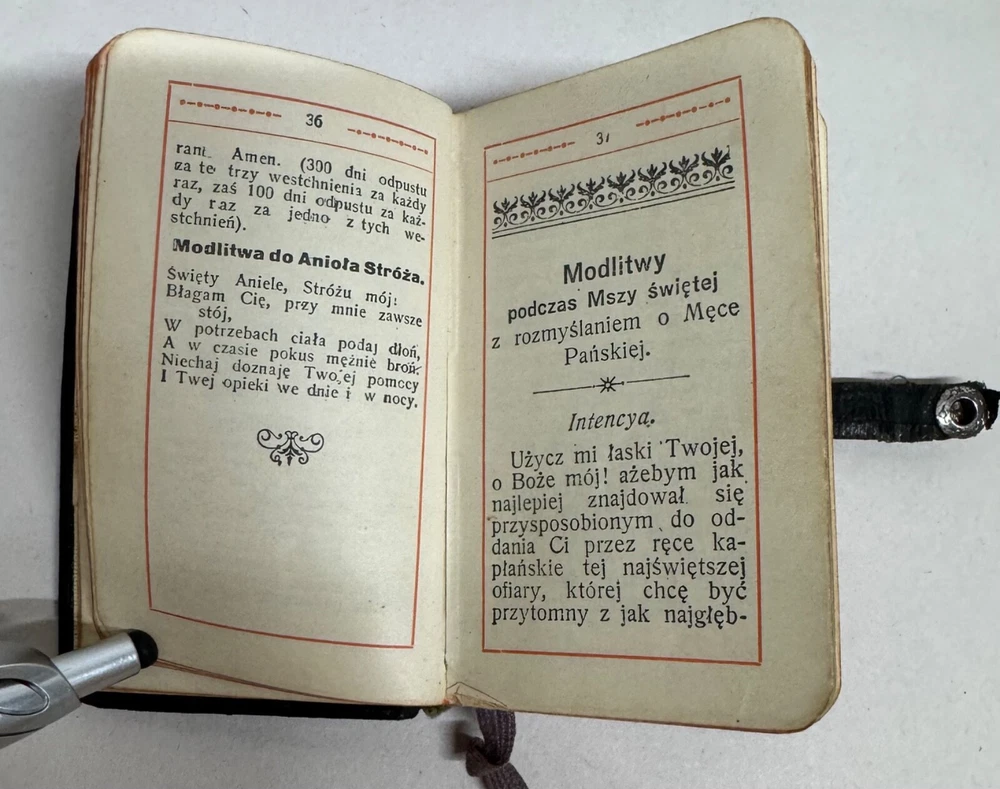 36
rani. Amen. (300 dni odpustu
za te trzy westchnienia za każdy
raz, zaś 100 dni odpustu za każ-
dy raz za jedno z tych we-
stchnień).
Modlitwa do Anioła Stróża.
Święty Aniele, Stróżu mój!
Błagam Cię, przy mnie zawsze
stój,
W potrzebach ciała podaj dłoń,
A w czasie pokus mężnie broń:
Niechaj doznaję Twojej pomocy
I Twej opieki we dnie i w nocy.
37
Modlitwy
podczas Mszy świętej
z rozmyślaniem o Męce
Pańskiej.
Intencya.
Użycz mi łaski Twojej,
o Boże mój! ażebym jak
najlepiej znajdował się
przysposobionym do od-
dania Ci przez ręce ka-
płańskie tej najświętszej
ofiary, której chcę być
przytomny z jak najgłęb-